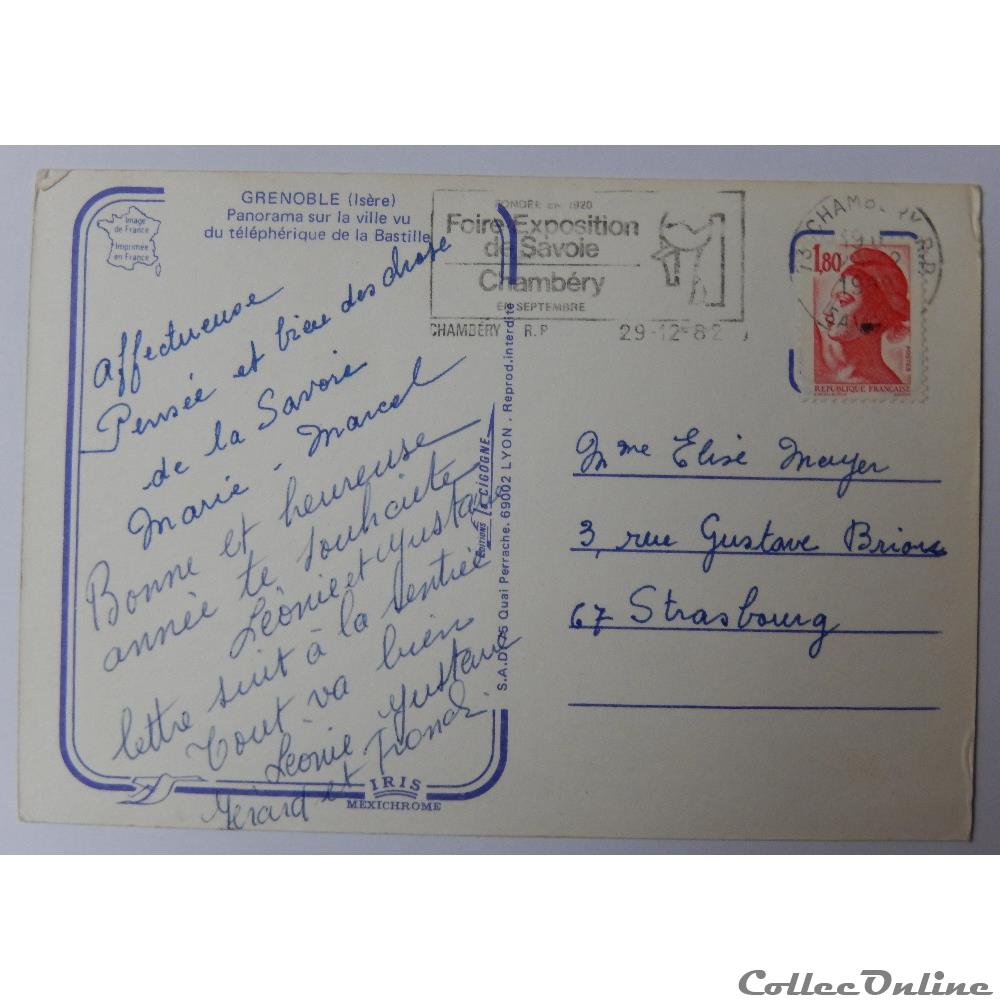 Image
de France
Imprimée
en France
GRENOBLE (Isère)
Panorama sur la ville vu
du téléphérique de la Bastille
FONDÉE EN 1920
Foire Exposition
de Savoie
Chambéry
EN SEPTEMBRE
CHAMBÉRY R.P
29-12-82
73 CHAMBERY R.P.
1,80
POSTES
REPUBLIQUE FRANÇAISE
Affectueuse
Pensée et bien des chose
de la Savoie
Marie - Marcel
Bonne et heureuse
année te souhaite
Léonie et Gustave
lettre suit à la rentrée
Tout va bien
Léonie Gustave
Gérard et
EDITIONS La CIGOGNE
S.A.D. 75 Quai Perrache. 69002 LYON . Reprod.interdite
IRIS
MEXICHROME
Mme Elise Mayer
3, rue Gustave
67 Strasbourg
CollecOnline